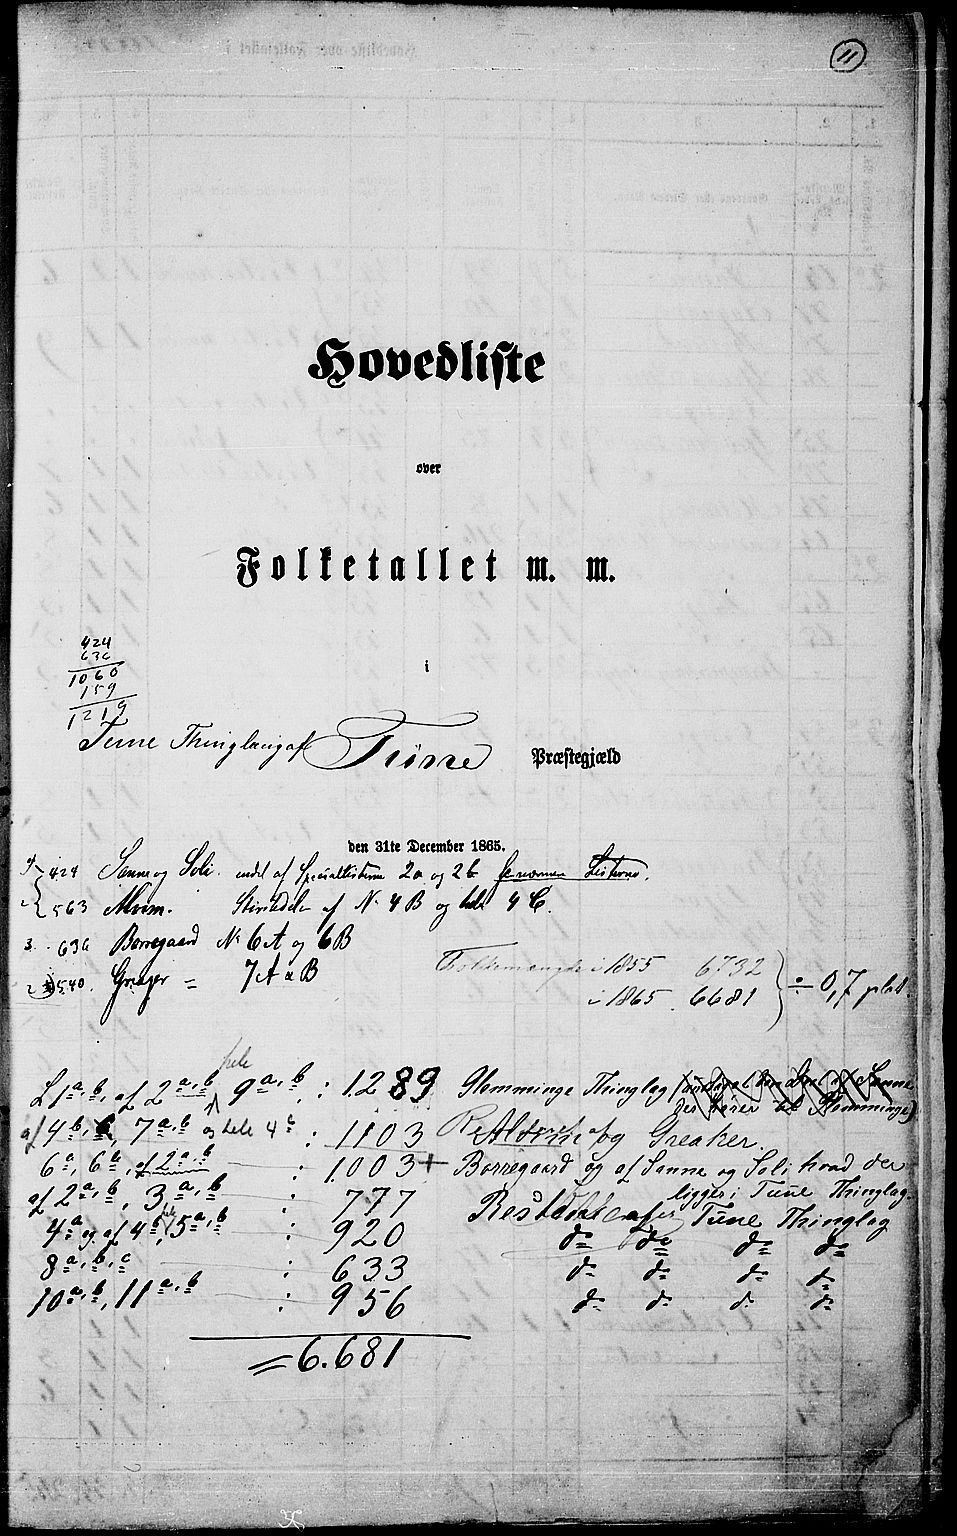 11
Hovedliste
over
Folketallet m. m.
i
424
636
1060
159
1219
Tune Thinglaug af Tune Præstegjæld
den 31te December 1865.
424 Sanne og Soli. endel af Speciallisterne 2a og 2b
563 Alvim. Störstedelen af No 4B og hele 4C.
3. 636 Borregaard No 6A og 6B
540. Greaker = 7A & B
Folkemængde i 1855 6732
i 1865. 6681 } ÷ 0,7 pCt.
hele
L 1a,b, af 2a,b, 9a,b, : 1289 Glemminge Thinglag
af 4b, 7a,b og hele 4c : 1103 Alvim og Greaker
6a, 6b, af 2a,b : 1.003 + Borregaard og af Sanne og Soli hvad der
ligger i Tune Thinglag.
af 2a,b, 3a,b : 777 Resten af Tune Thinglag
4a og af 4b, 5a,b : 920 do do do do
8a,b,c : 633 do do do do
10a,b, 11a,b : 956 do do do do
= 6.681